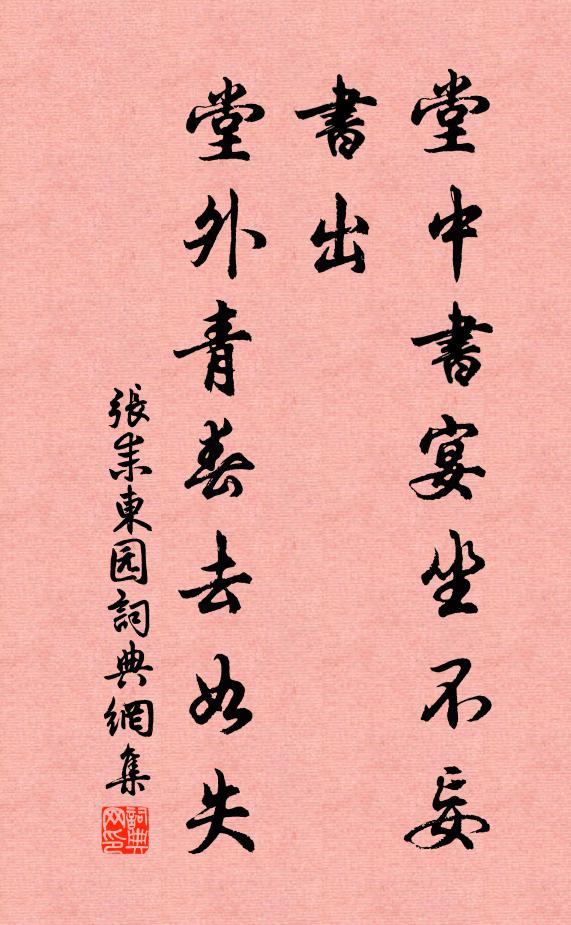 堂中書宴坐不妄
書出
堂外青春去如失
張耒東园詞典網集
詞典
网印